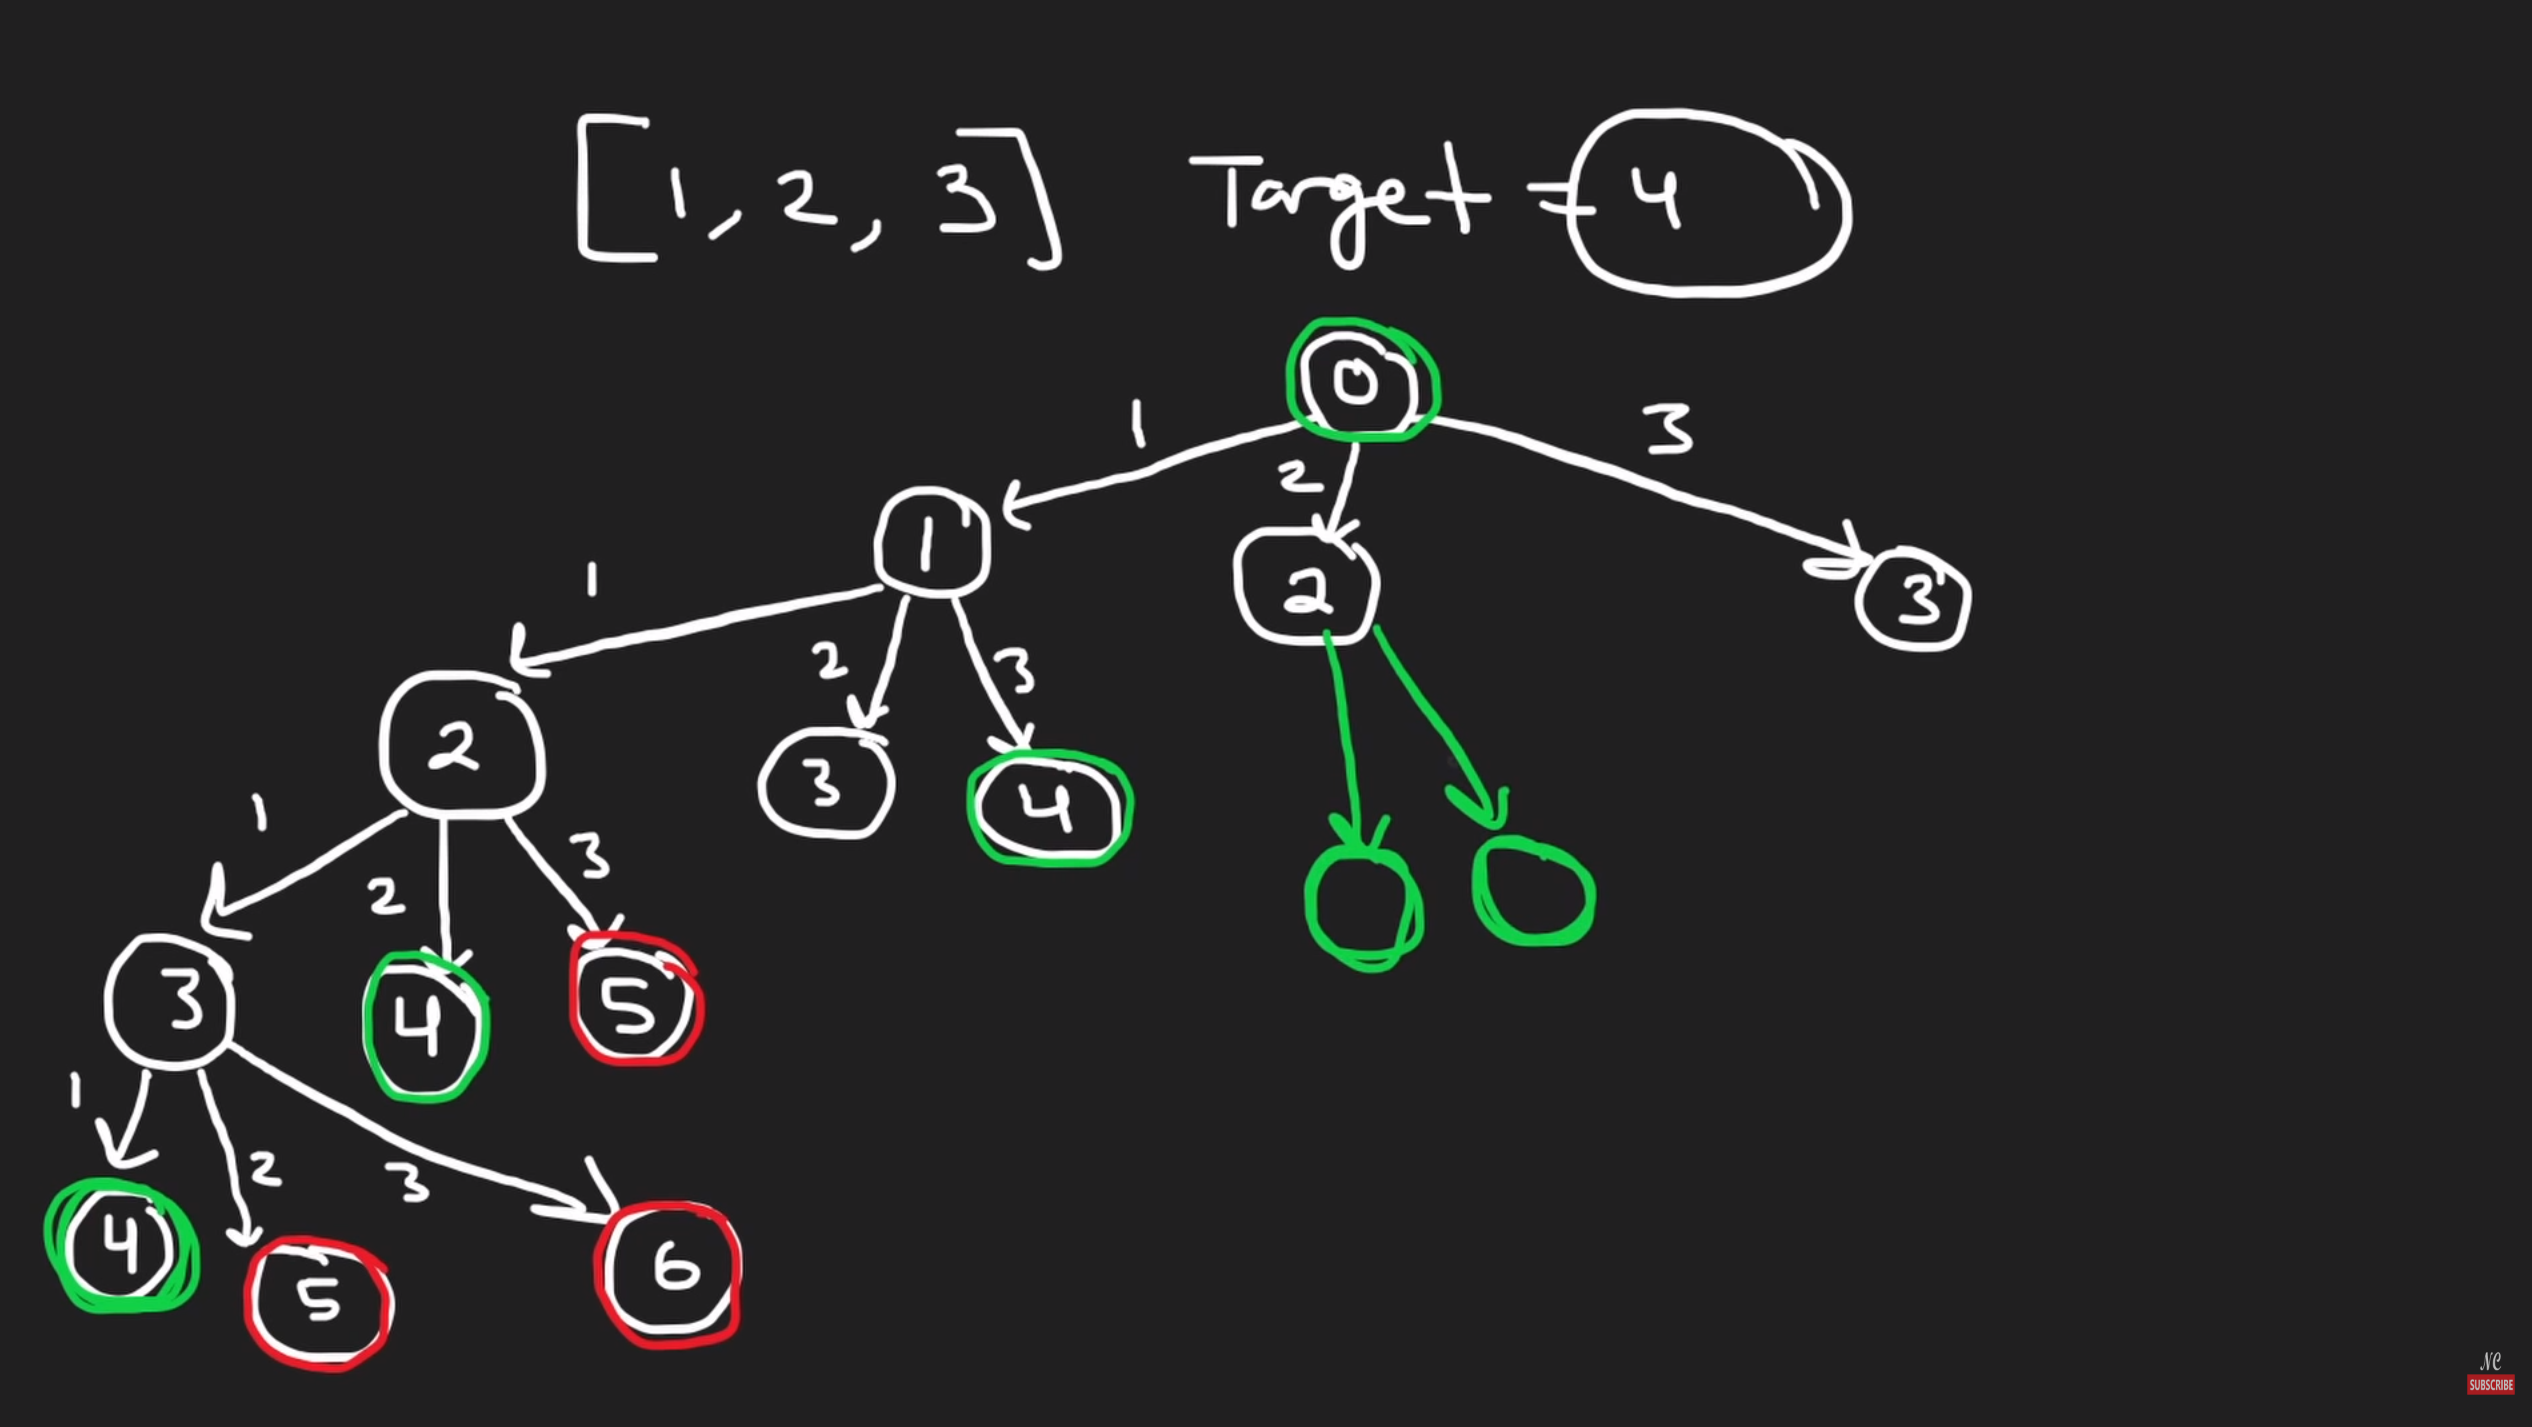 [1, 2, 3] Target = 4
0
1 2 3
1 2 3
1 2 3
2 3 4
1 2 3
3 4 5
1 2 3
4 5 6
NC
SUBSCRIBE